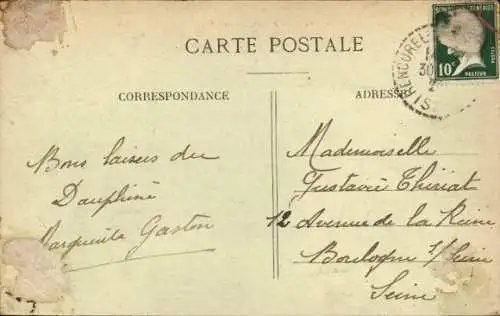 CARTE POSTALE
RENCUREL
30
IS
REPUBLIQUE FRANÇAISE
10c
PASTEUR
POSTES
CORRESPONDANCE
ADRESSE
Bons baisers du
Dauphiné
Marguerite Gaston
Mademoiselle
Gustavie Thiriat
12 Avenue de la Reine
Boulogne s/Seine
Seine